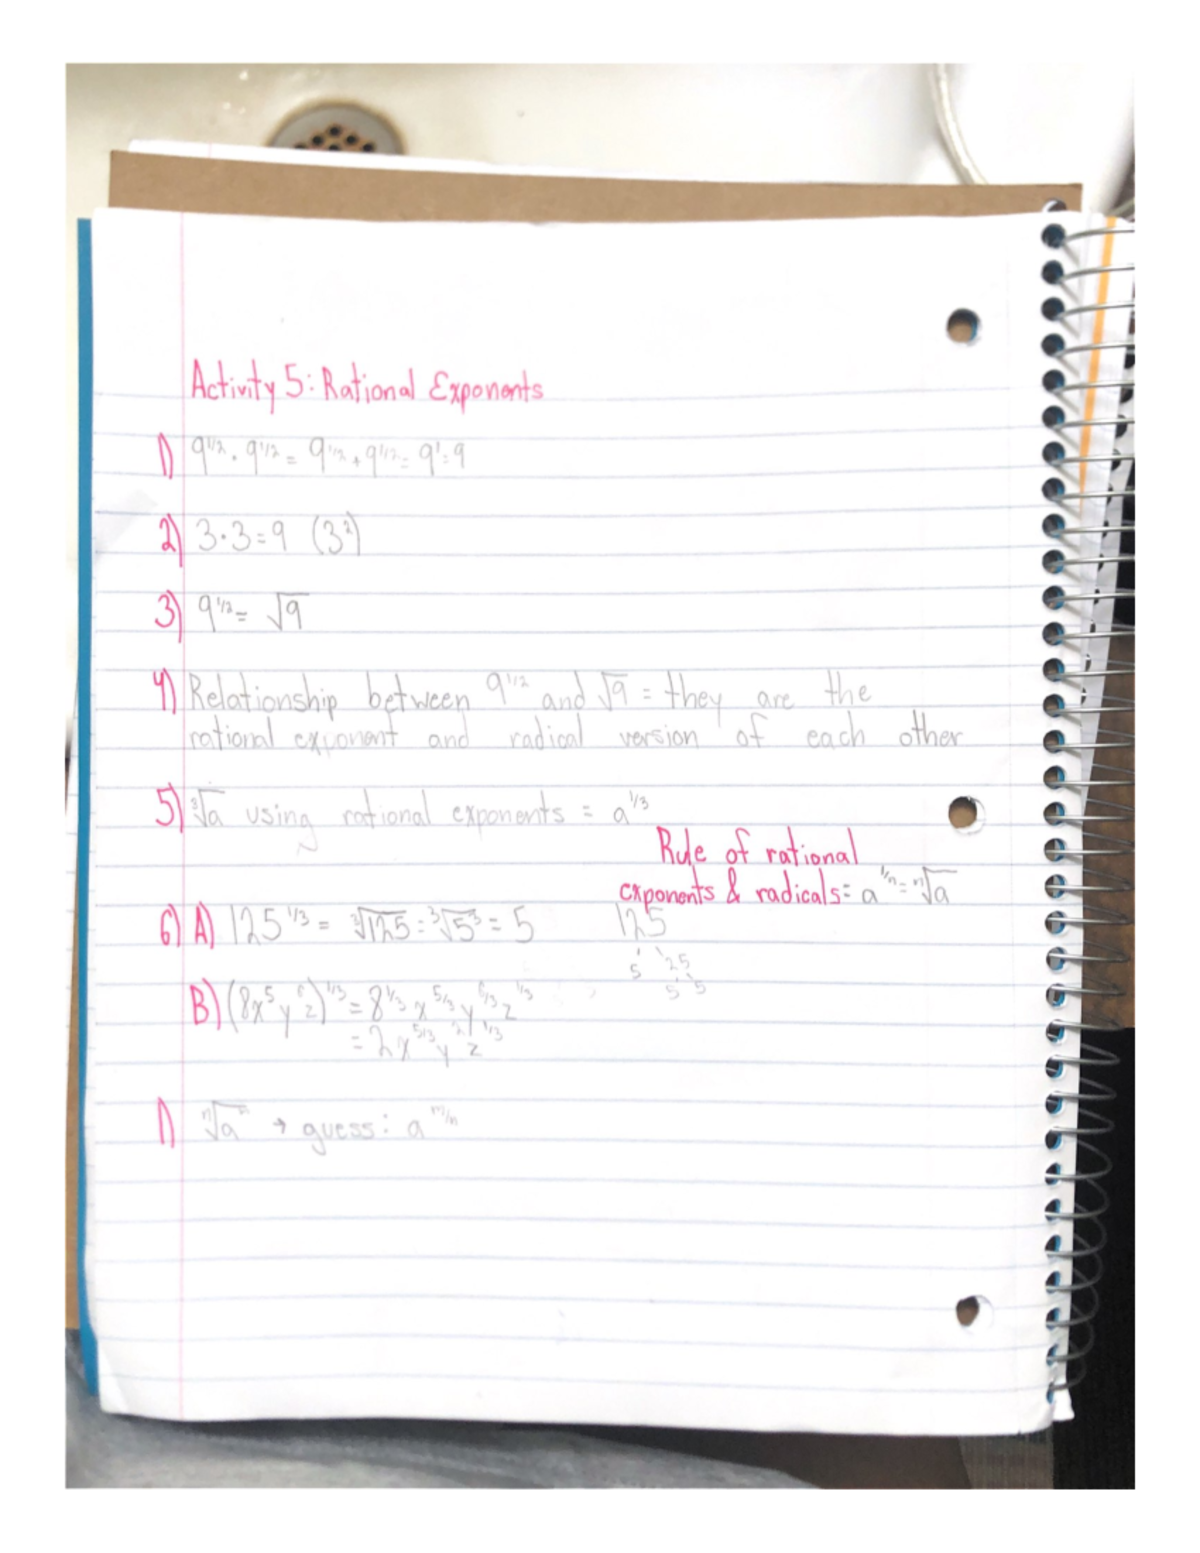 Activity 5: Rational Exponents
1) 9^1/2 · 9^1/2 = 9^1/2 + 9^1/2 = 9^1 = 9
2) 3·3=9 (3²)
3) 9^1/2 = √9
4) Relationship between 9^1/2 and √9 = they are the
rational exponent and radical version of each other
5) ³√a using rational exponents = a^1/3
Rule of rational
exponents & radicals = a^1/n = ⁿ√a
6) A) 125^1/3 = ³√125 = ³√5³ = 5 125
5 25
5 5
B) (8x⁵y⁶z)^1/3 = 8^1/3 x^5/3 y^6/3 z^1/3
= 2x^5/3 y² z^1/3
1) ⁿ√a^m → guess: a^m/n